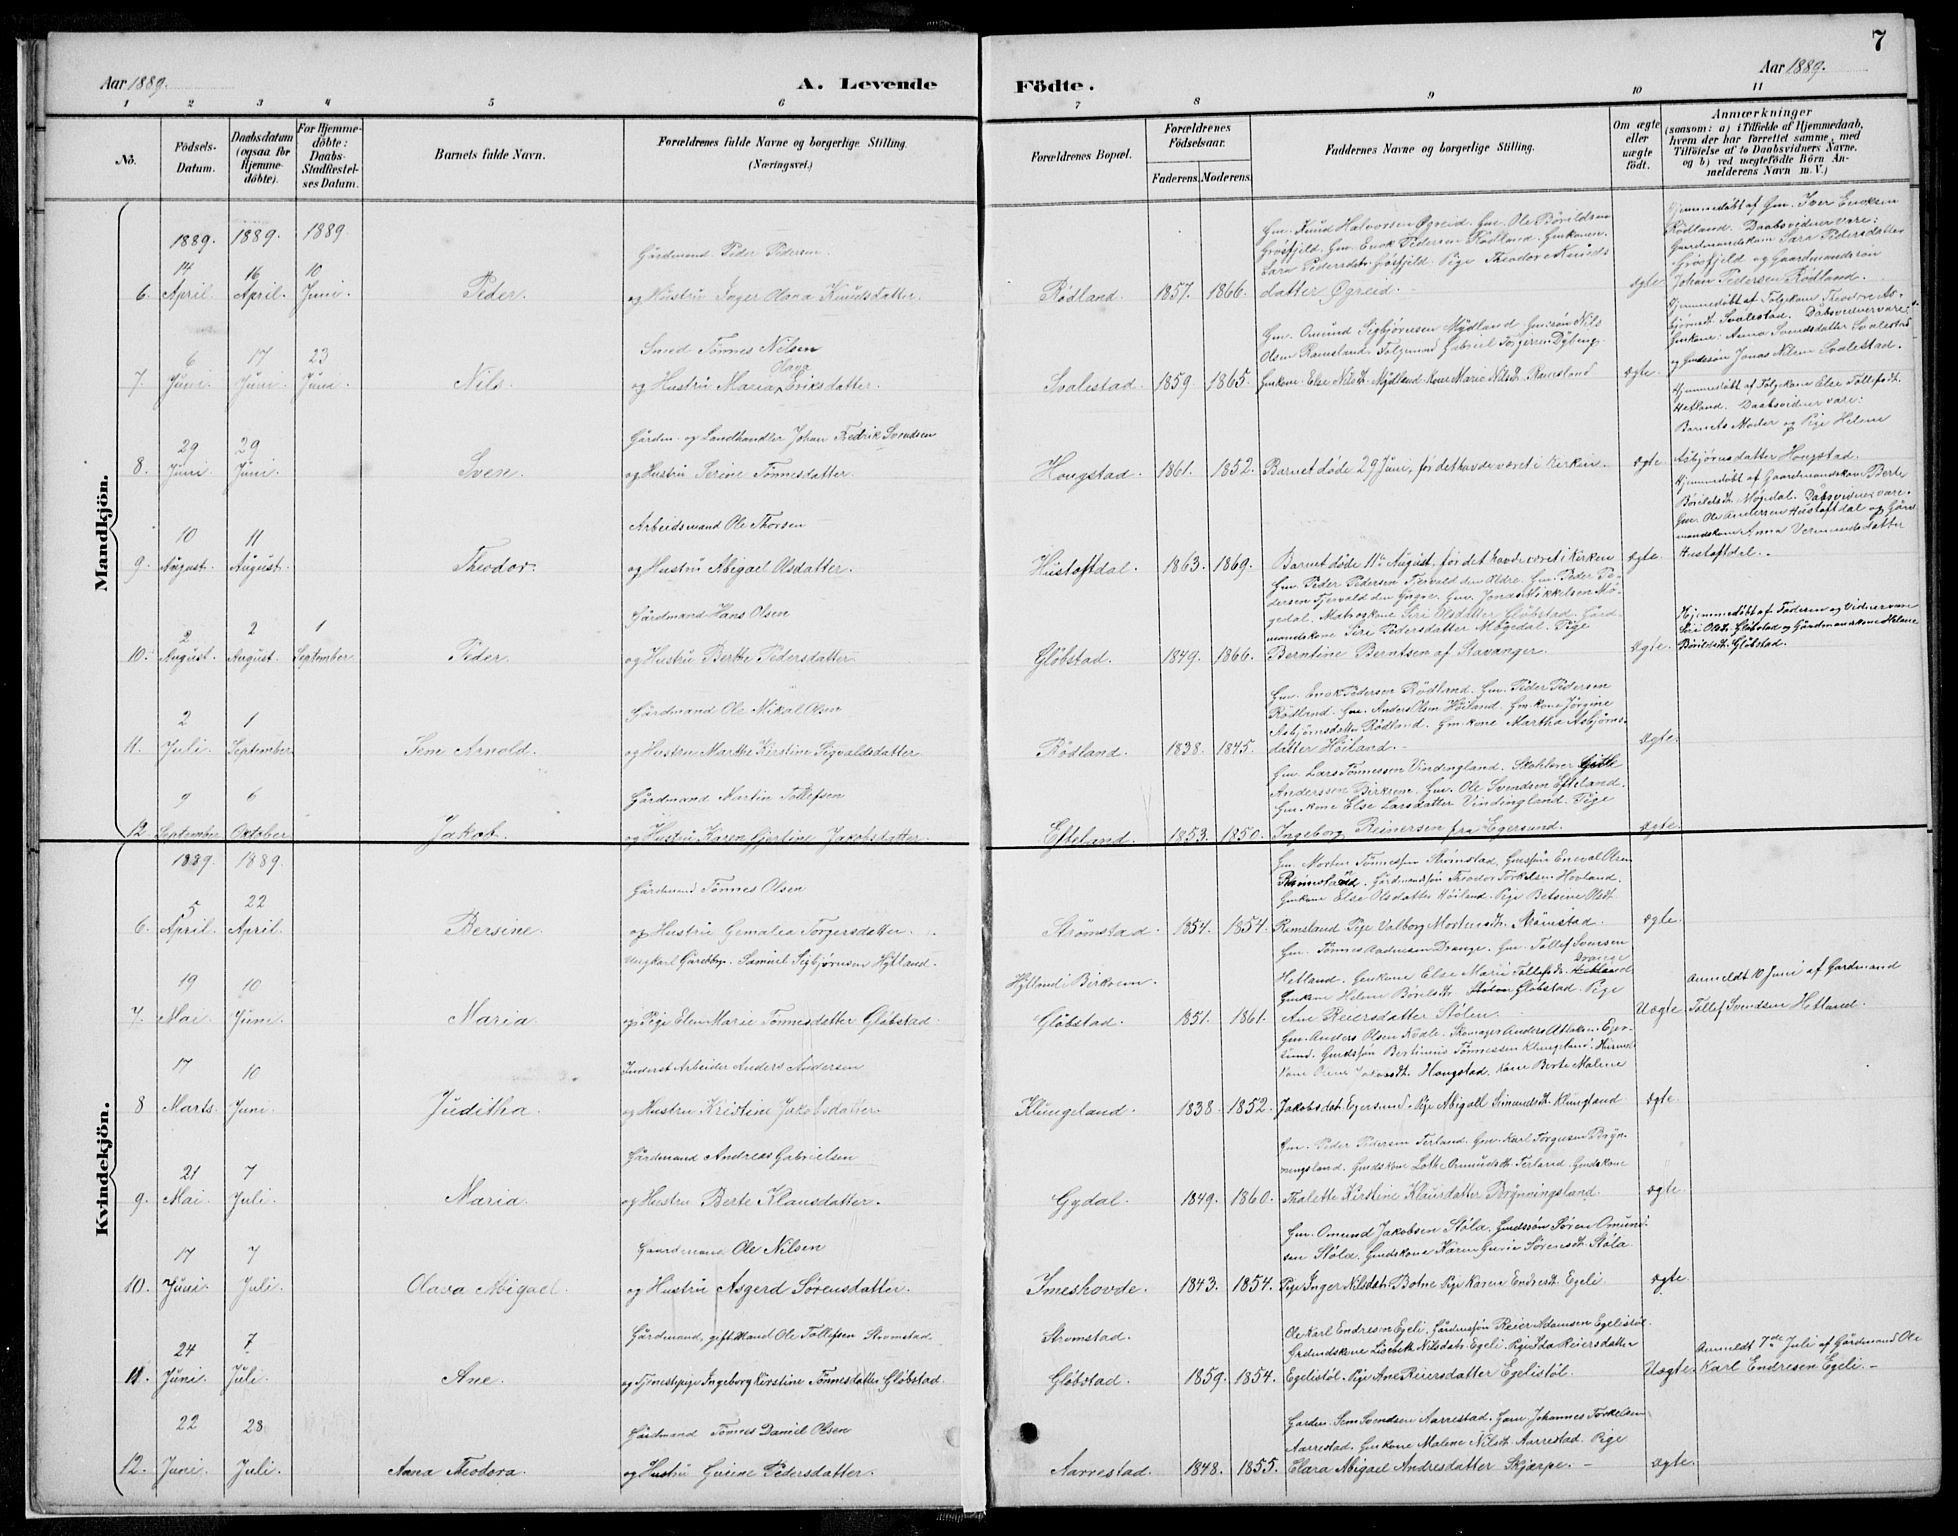 7
Aar 1889.
A. Levende
Födte.
Aar 1889.
1 2 3 4 5 6 7 8 9 10 11
No.
Födsels-
Datum.
Daabsdatum
(ogsaa for
Hjemme-
döbte).
For Hjemme-
döbte:
Daabs-
Stadfæstel-
ses Datum.
Barnets fulde Navn.
Forældrenes fulde Navne og borgerlige Stilling.
(Næringsvei.)
Forældrenes Bopæl.
Forældrenes
Födselsaar.
Faderens.
Moderens.
Faddernes Navne og borgerlige Stilling.
Om ægte
eller
uægte
födt.
Anmærkninger
(saasom: a) i Tilfælde af Hjemmedaab,
hvem der har forrettet samme, med
Tilföielse af to Daabsvidners Navne,
og b) ved uægtefödte Börn An-
melderens Navn m. V.)
Mandkjön.
1889. 1889. 1889.
14 16 10
6. April. April. Juni. Peder.
Gårdmand Peder Pedersen
og Hustru Inger Olava Knudsdatter.
Rödland. 1857. 1866.
Gm. Knud Halvorsen Øgreid. Gm. Ole Börildsen
Grösfjeld. Gm. Enok Pedersen Rödland. Gmkonen
Sara Pedersdatr. Grösfjeld. Pige Theodore Knuds
datter Øgreid.
Ægte.
Hjemmedöbt af Gm. Iver Enoksen
Rödland. Daabsvidner vare:
Gaardmandskone Sara Pedersdatter
Grösfjeld og Gaardmandssön
Johan Pedersen Rödland.
6 17 23
7. Juni. Juni. Juni. Nils.
Smed Tönnes Nilsen
og Hustru Maria Olava Eriksdatter.
Svalestad. 1859. 1865.
Gm. Omund Sigbjörnsen Mydland. Gmssön Nils
Olsen Ramsland. Folgemand Gabriel Torgersen Dybing.
Gmkone Else Nilsdtr. Mydland. Kone Marie Nilsdtr. Ramsland
Ægte.
Hjemmedöbt af Folgekone Theodore As-
björnsdtr. Svalestad. Daabsvidner vare:
Gmkone. Anna Svendsdatter Svalestad
og Gmdssön Jonas Nilsen Svalestad.
29 29
8. Juni. Juni. Sven.
Gårdm. og Landhandler Johan Fredrik Svendsen
og Hustru Serine Tönnesdatter.
Hougstad. 1861. 1852.
Barnet döde 29 Juni, för det havde været i Kirken.
Ægte.
Hjemmedöbt af Folgekone Else Tollefsdtr.
Hetland. Daabsvidner vare:
Barnets Moder og Pige Helene
Asbjörnsdatter Hougstad.
10 11
9. August. August. Theodor.
Arbeidsmand Ole Thorsen
og Hustru Abigael Olsdatter.
Hustoftdal. 1863. 1869.
Barnet döde 11te August, för det havde været i Kirken
Ægte.
Hjemmedöbt af Gaardmandskone Berte
Börildsdtr. Mögedal. Daabsvidner vare:
Gm. Ole Andersen Hustoftdal og Gård
mandskone Anna Vermundsdatter
Hustoftdal.
2 2 1
10. August. August. September. Peder.
Gårdmand Hans Olsen
og Hustru Berthe Pedersdatter
Glöbstad. 1849. 1866.
Gm. Peder Pedersen Tjervald den Ældre. Gm. Peder Pe-
dersen Tjervald den Yngre. Gm. Jonas Mikkelsen Mö-
gedal. Madr.kone Siri Olsdatter Glöbstad. Gård-
mandskone Siri Pedersdatter Mögedal. Pige
Berntine Berntsen af Stavanger.
Ægte.
Hjemmedöbt af Faderen og Vidner vare
Siri Olsdtr. Glöbstad og Gårdmandskone Helene
Börildsdtr. Glöbstad.
2 1
11. Juli. September. Sem Arnold.
Gårdmand Ole Mikal Olsen
og Hustru Marthe Kirstine Sigvaldsdatter
Rödland. 1838. 1845.
Gm. Enok Pedersen Rödland. Gm. Peder Pedersen
Rödland. Gm. Anders Olsen Höiland. Gmkone Jörgine
Asbjörnsdatter Rödland. Gmkone Martha Asbjörns-
datter Höiland.
Ægte.
9 6
12. September. Oktober. Jakob.
Gårdmand Martin Tollefsen
og Hustru Karen Kjertine Jakobsdatter.
Efteland. 1853. 1850.
Gm. Lars Tönnessen Vindingland. Skolelærer
Anderssen Birkrem. Gm. Ole Svendsen Efteland.
Gm. kone Else Larsdatter Vindingland. Pige
Ingeborg Reinersen fra Egersund.
Ægte.
Kvindekjön.
1889. 1889.
5 22
6. April. April. Bersine.
Gårdmand Tönnes Olsen
og Hustru Gemalea Torgersdatter.
Strömstad. 1854. 1854.
Gm. Morten Tönnessen Strömstad. Gmssön Enevald Olsen
Ramsland. Gårdmandssön Theodor Torkelsen Hovland.
Gmkone Else Olsdatter Höiland. Pige Betsine Olsdtr.
Remsland. Pige Valborg Mortensdtr. Strömstad.
Ægte.
19 10
7. Mai. Juni. Maria.
Ungkarl Gårdbgr. Samuel Sigbjörnsen Hylland.
og Pige Elen Marie Tönnesdatter Glöbstad
Hylland i Birkrem.
Glöbstad. 1851. 1861.
Gm. Tönnes Aadnesen Drange. Gm. Tollef Svensen
Hetland. Gmkone Else Marie Tollefsdtr. Drange
Gmkone Helene Börildsdtr. Glöbstad. Pige
Ane Reiersdatter Stölen.
Uægte.
Anmeldt 10 Juni af Gardmand
Tollef Svendsen Hetland.
17 10
8 Marts. Juni. Juditha.
Inderst Arbeider Anders Andersen
og Hustru Kristine Jakobsdatter.
Klungeland. 1838. 1852.
Gm. Anders Olsen Kvale. Skomager Anders Attaksen Eger-
sund. Gmdssön Bertinius Tönnessen Klungeland.
Hougstad. Kone Berte Malene
Jakobsdtr. Egersund. Pige Abigall Simundsdtr. Klungland
Ægte.
21 7
9. Mai. Juli. Maria.
Gårdmand Andreas Gabrielsen
og Hustru Berte Klausdatter.
Gydal. 1849. 1860.
Gm. Peder Pedersen Terland. Gm. Karl Torgersen Bryn-
ningsland. Gmdskone Lothe Omundsdtr. Terland. Gmdskone
Thalette Kirstine Klausdatter Brynningsland.
Ægte.
17 7
10. Juni. Juli. Olava Abigael.
Gaardmand Ole Nilsen
og Hustru Asgerd Sörensdatter.
Imeshovde. 1843. 1854.
Gm. Omund Jakobsen Stöla. Gmdssön Sören Omund-
sen Stöld. Gmdskone Karen Gurie Sörensdtr. Stöla.
Pige Inger Nilsdatr. Botne. Pige Karen Endresdtr. Egeli
Ægte
24 7
11. Juni. Juli. Ane.
Gårdmand, gift Mand Ole Tollefsen Strömstad
og Tjenestepige Ingeborg Kirstine Tönnesdatter Glöbstad.
Strömstad.
Glöbstad. 1859. 1854.
Ole Karl Endresen Egeli. Gårdmssön Reier Adamsen Egelistöl.
Grdmdskone Lisebeth Nilsdatr. Egeli. Pige Ida Reiersdatter
Egelistöl. Pige Ane Reiersdatter Egelistöl.
Uægte.
Anmeldt 7de Juli af Gårdmand Ole
Karl Endresen Egeli.
22 28
12. Juni. Juli. Anna Theodora.
Gårdmand Tönnes Daniel Olsen
og Hustru Gurine Pedersdatter.
Aarrestad. 1848. 1855.
Gardm. Sem Svendsen Aarrestad. Gm. Johannes Torkelsen
Aarrestad. Gmkone Malene Nilsdtr. Aarrestad. Pige
Clara Abigael Andresdatter Skjærpe.
Ægte.